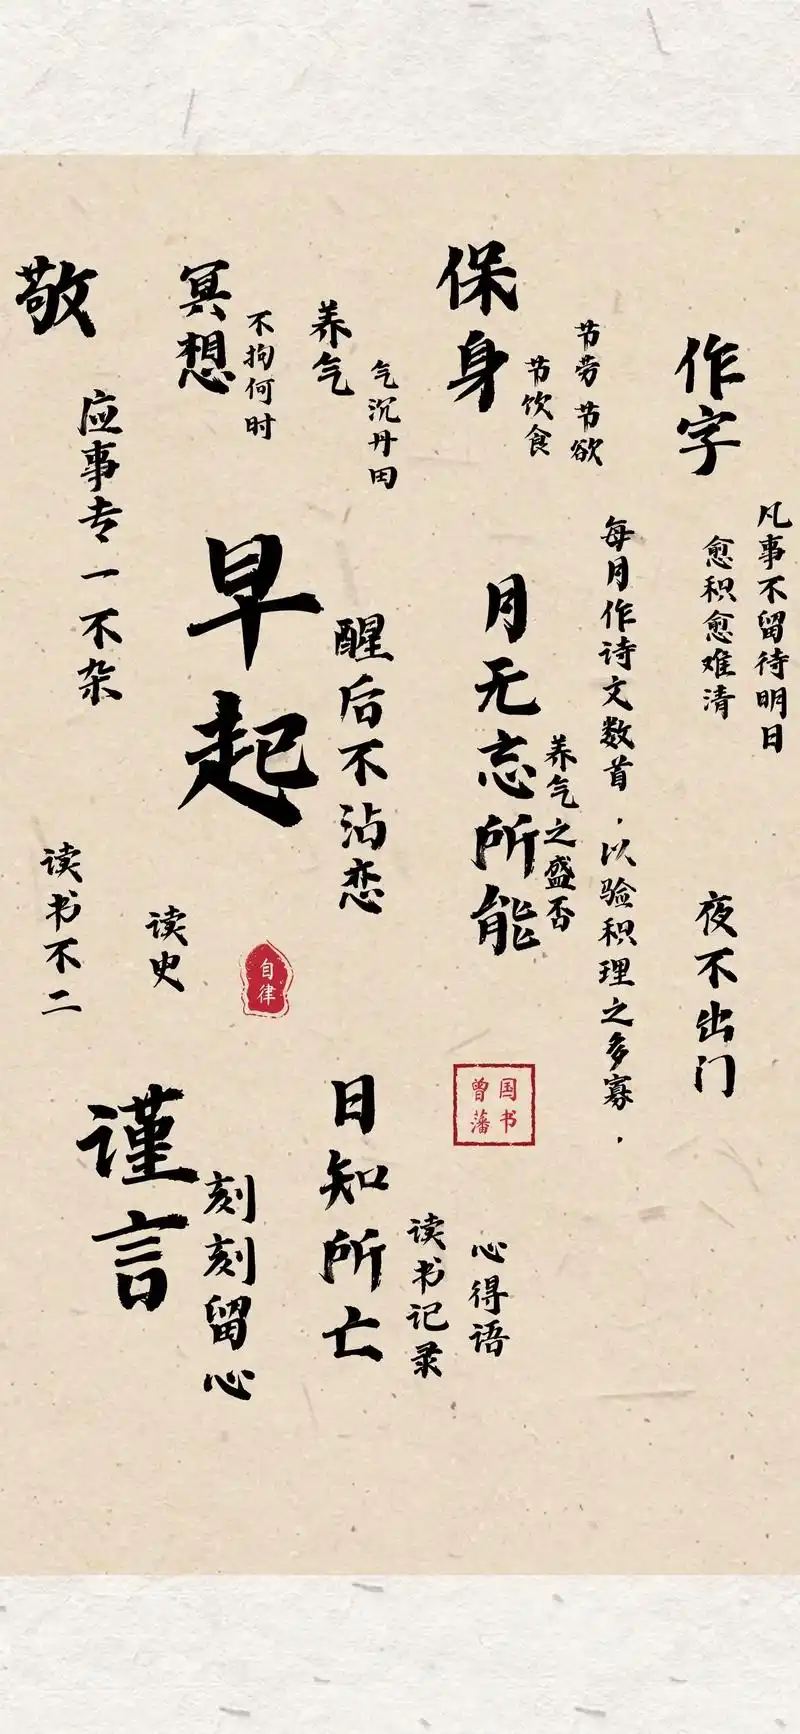 敬
应事专一不杂
冥想
不拘何时
养气
气沉丹田
保身
节劳 节欲
节饮食
作字
凡事不留待明日
愈积愈难清
早起
醒后不沾恋
月无忘所能
养气之盛否
每月作诗文数首，以验积理之多寡，
读书不二
读史
自律
夜不出门
谨言
刻刻留心
日知所亡
读书记录
心得语
国书
曾藩